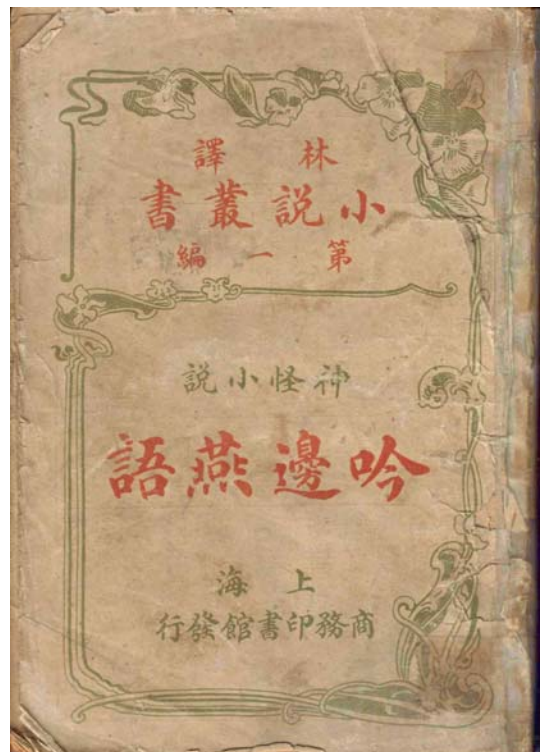 林譯
小說叢書
第一編
神怪小說
吟邊燕語
上海
商務印書館發行